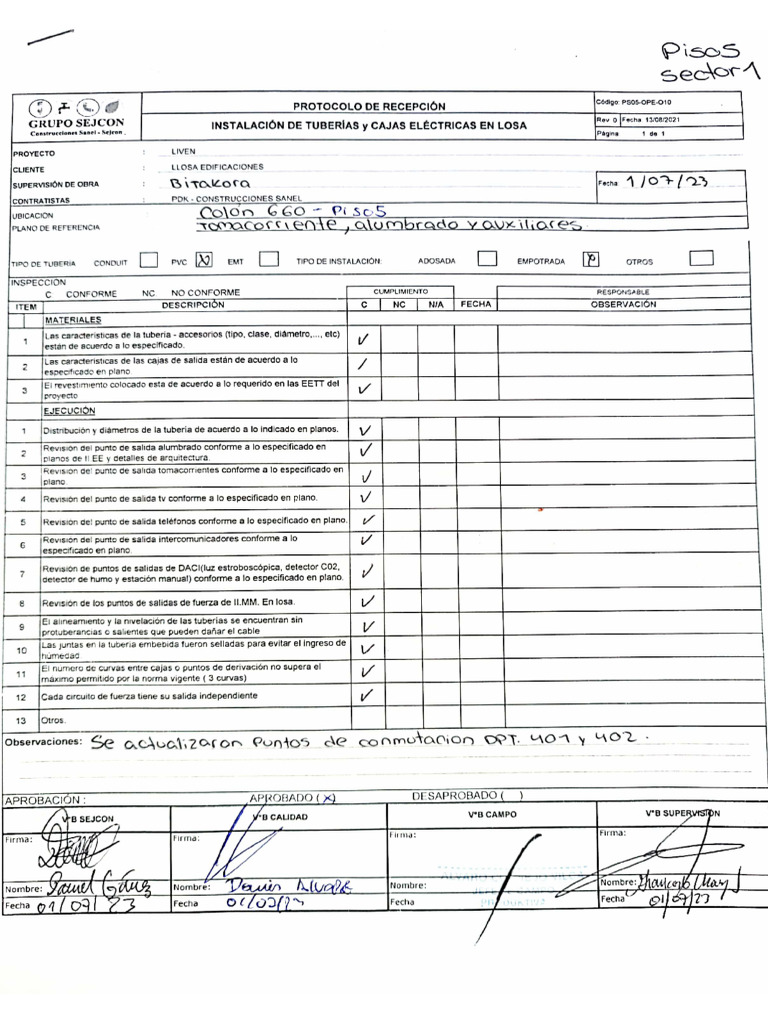 Piso5
sector 1
GRUPO SEJCON
Construcciones Sanel - Sejcon
PROTOCOLO DE RECEPCIÓN
INSTALACIÓN DE TUBERÍAS y CAJAS ELÉCTRICAS EN LOSA
Código: PS05-OPE-O10
Rev 0 Fecha 13/08/2021
Página 1 de 1
PROYECTO : LIVEN
CLIENTE : LLOSA EDIFICACIONES
SUPERVISIÓN DE OBRA : Bitakora
Fecha 1/07/23
CONTRATISTAS : PDK - CONSTRUCCIONES SANEL
UBICACION : Colón 660 - Piso5
PLANO DE REFERENCIA : Tomacorriente, alumbrado y auxiliares
TIPO DE TUBERIA CONDUIT PVC EMT TIPO DE INSTALACIÓN: ADOSADA EMPOTRADA OTROS
INSPECCION
C CONFORME NC NO CONFORME CUMPLIMIENTO RESPONSABLE
ITEM DESCRIPCIÓN C NC N/A FECHA OBSERVACIÓN
MATERIALES
1 Las características de la tuberia - accesorios (tipo, clase, diámetro,...., etc) están de acuerdo a lo especificado. ✓
2 Las características de las cajas de salida están de acuerdo a lo especificado en plano. ✓
3 El revestimiento colocado esta de acuerdo a lo requerido en las EETT del proyecto ✓
EJECUCIÓN
1 Distribución y diámetros de la tuberia de acuerdo a lo indicado en planos. ✓
2 Revisión del punto de salida alumbrado conforme a lo especificado en planos de II EE y detalles de arquitectura. ✓
3 Revisión del punto de salida tomacorrientes conforme a lo especificado en plano. ✓
4 Revisión del punto de salida tv conforme a lo especificado en plano. ✓
5 Revisión del punto de salida teléfonos conforme a lo especificado en plano. ✓
6 Revisión del punto de salida intercomunicadores conforme a lo especificado en plano. ✓
7 Revisión de puntos de salidas de DACI(luz estroboscópica, detector C02, detector de humo y estación manual) conforme a lo especificado en plano. ✓
8 Revisión de los puntos de salidas de fuerza de II.MM. En losa. ✓
9 El alineamiento y la nivelación de las tuberías se encuentran sin protuberancias o salientes que pueden dañar el cable ✓
10 Las juntas en la tuberia embebida fueron selladas para evitar el ingreso de humedad. ✓
11 El numero de curvas entre cajas o puntos de derivación no supera el máximo permitido por la norma vigente ( 3 curvas) ✓
12 Cada circuito de fuerza tiene su salida independiente ✓
13 Otros.
Observaciones: Se actualizaron Puntos de conmutacion DPT. 401 y 402.
APROBACIÓN : APROBADO (x) DESAPROBADO ( )
V°B SEJCON V°B CALIDAD V°B CAMPO V°B SUPERVISIÓN
Firma: Firma: Firma: Firma:
Nombre: Nombre: Nombre: Nombre:
Fecha 01/07/23 Fecha 01/07/23 Fecha Fecha 01/07/23